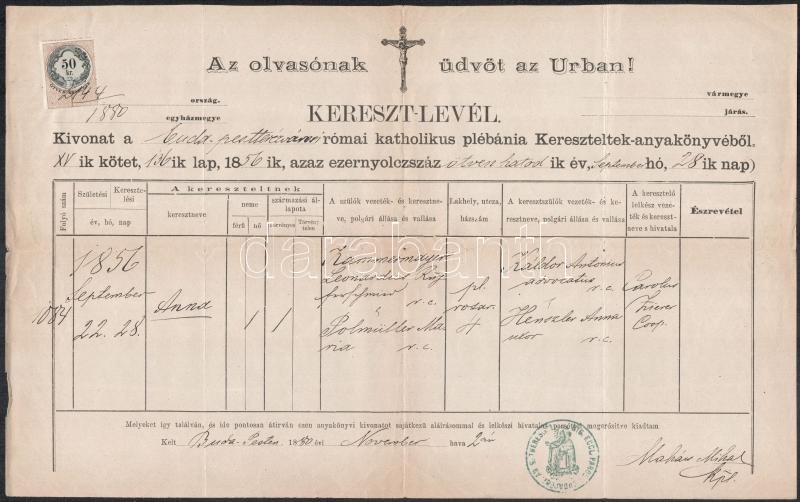 50
kr.
2144
1880
Az olvasónak üdvöt az Urban!
ország. vármegye
egyházmegye járás.
KERESZT-LEVÉL.
Kivonat a Buda-pest római katholikus plébánia Kereszteltek-anyakönyvéből.
XV ik kötet, 136 ik lap, 1856 ik, azaz ezernyolczszáz ötvenhatod ik év, September hó, 28 ik nap)
Folyó szám
Születési Keresztelési
év, hó, nap
A kereszteltnek
keresztneve
neme
férfi nő
származási állapota
törvényes Törvénytelen
A szülők vezeték- és keresztneve, polgári állása és vallása
Lakhely, utcza, házszám
A keresztszülők vezeték- és keresztneve, polgári állása és vallása
A keresztelő lelkész vezeték és keresztneve s hivatala
Észrevétel
1084
1856
September
22. 28.
Anna
1 1
Kammermayer
Leonardus,
r. c.
Polmüller Maria r. c.
pl.
rosar.
4
Káldor Antonius
advocatus r. c.
Henszler Anna
uxor r. c.
Carolus
Coop.
Melyeket így találván, és ide pontosan átirván ezen anyakönyvi kivonatot sajátkezű aláirásommal és lelkészi hivatalos megerősitve kiadtam
Kelt Buda-Pesten 1880 évi November hava 2án
Mihal
kpl.
darabanth